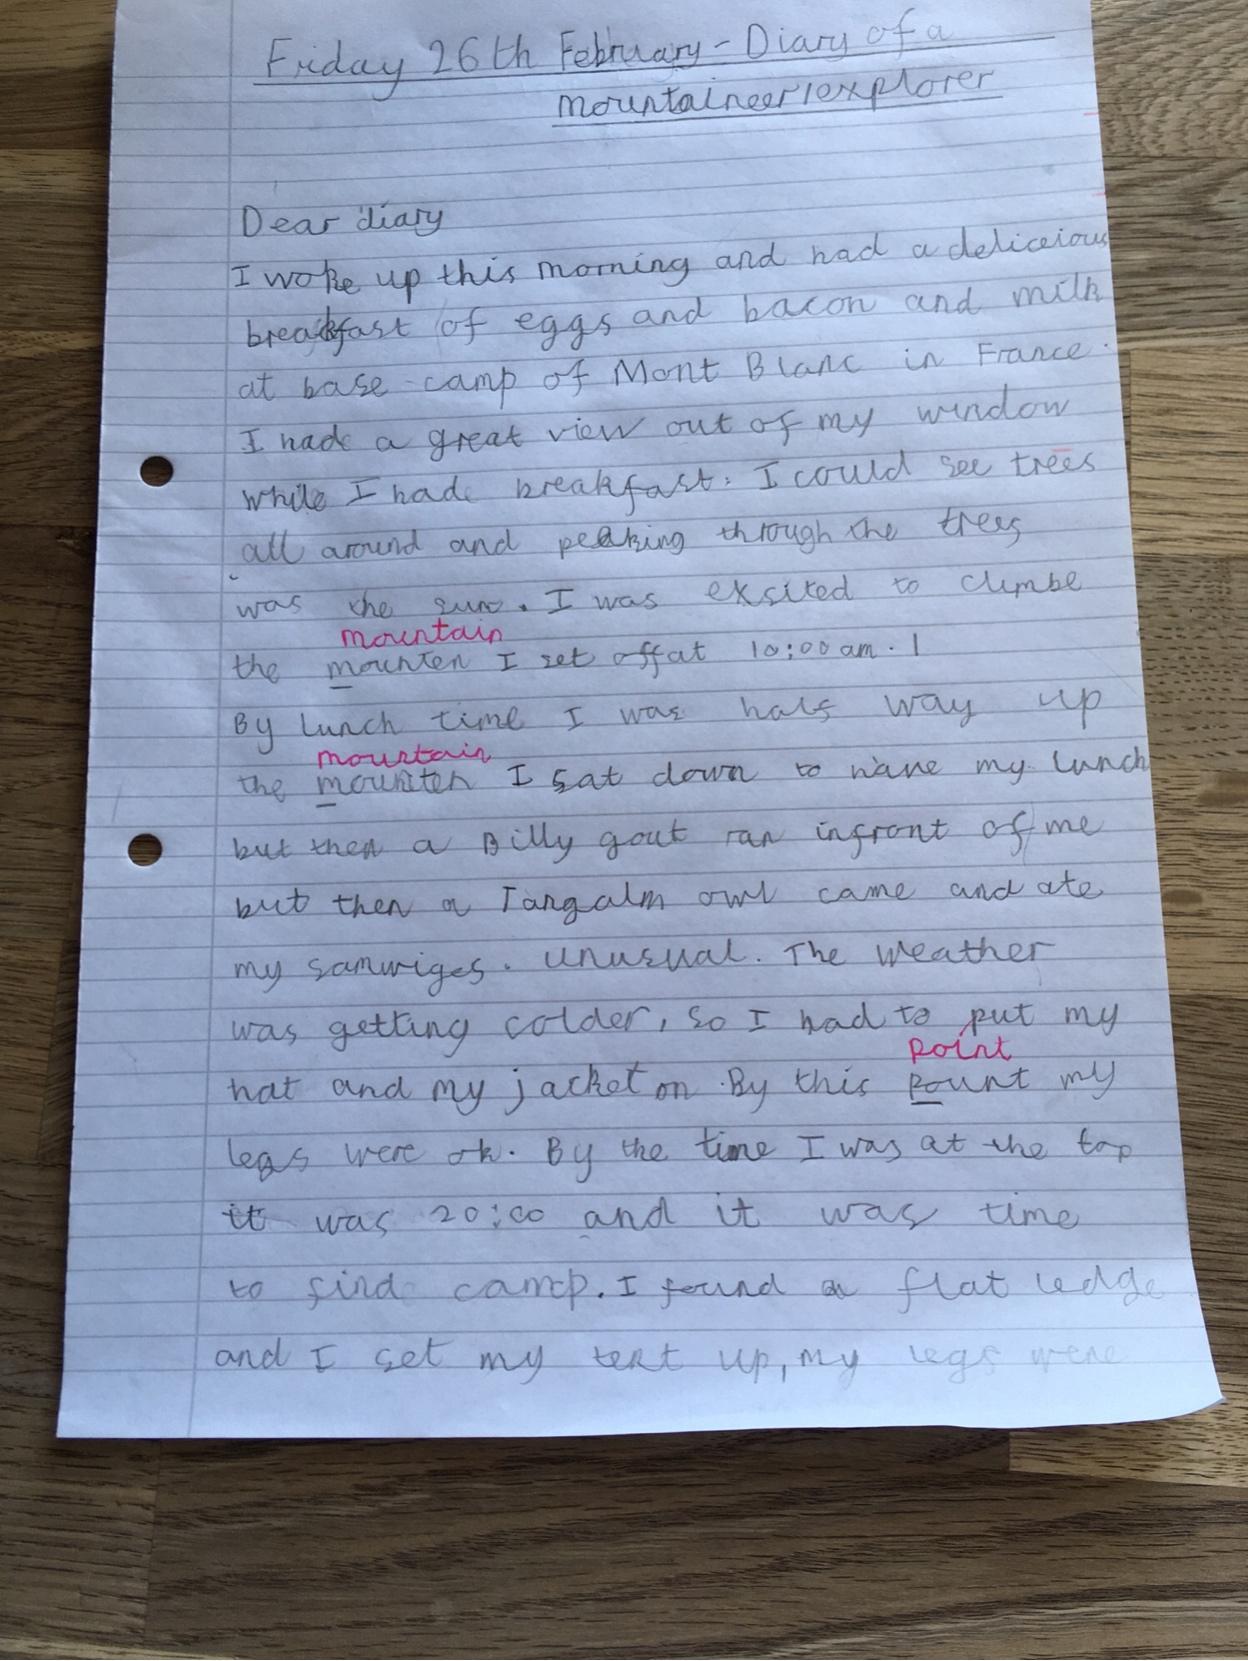 Friday 26th February - Diary of a
mountaineer/explorer
Dear diary
I woke up this morning and had a deliceious
breakfast of eggs and bacon and milk
at base camp of Mont Blanc in France.
I hade a great view out of my window
while I hade breakfast. I could see trees
all around and peaking through the trees
was the sun. I was exsited to climbe
mountain
the mounten I set off at 10:00 am.
By lunch time I was half way up
mountain
the mounten I sat down to have my lunch
but then a Billy gout ran infront of me
but then a owl came and ate
my samwiges. unusual. The weather
was getting colder, so I had to put my
point
hat and my jacket on. By this pount my
legs were ok. By the time I was at the top
it was 20:00 and it was time
to find camp. I found a flat ledge
and I set my tent up, my legs were